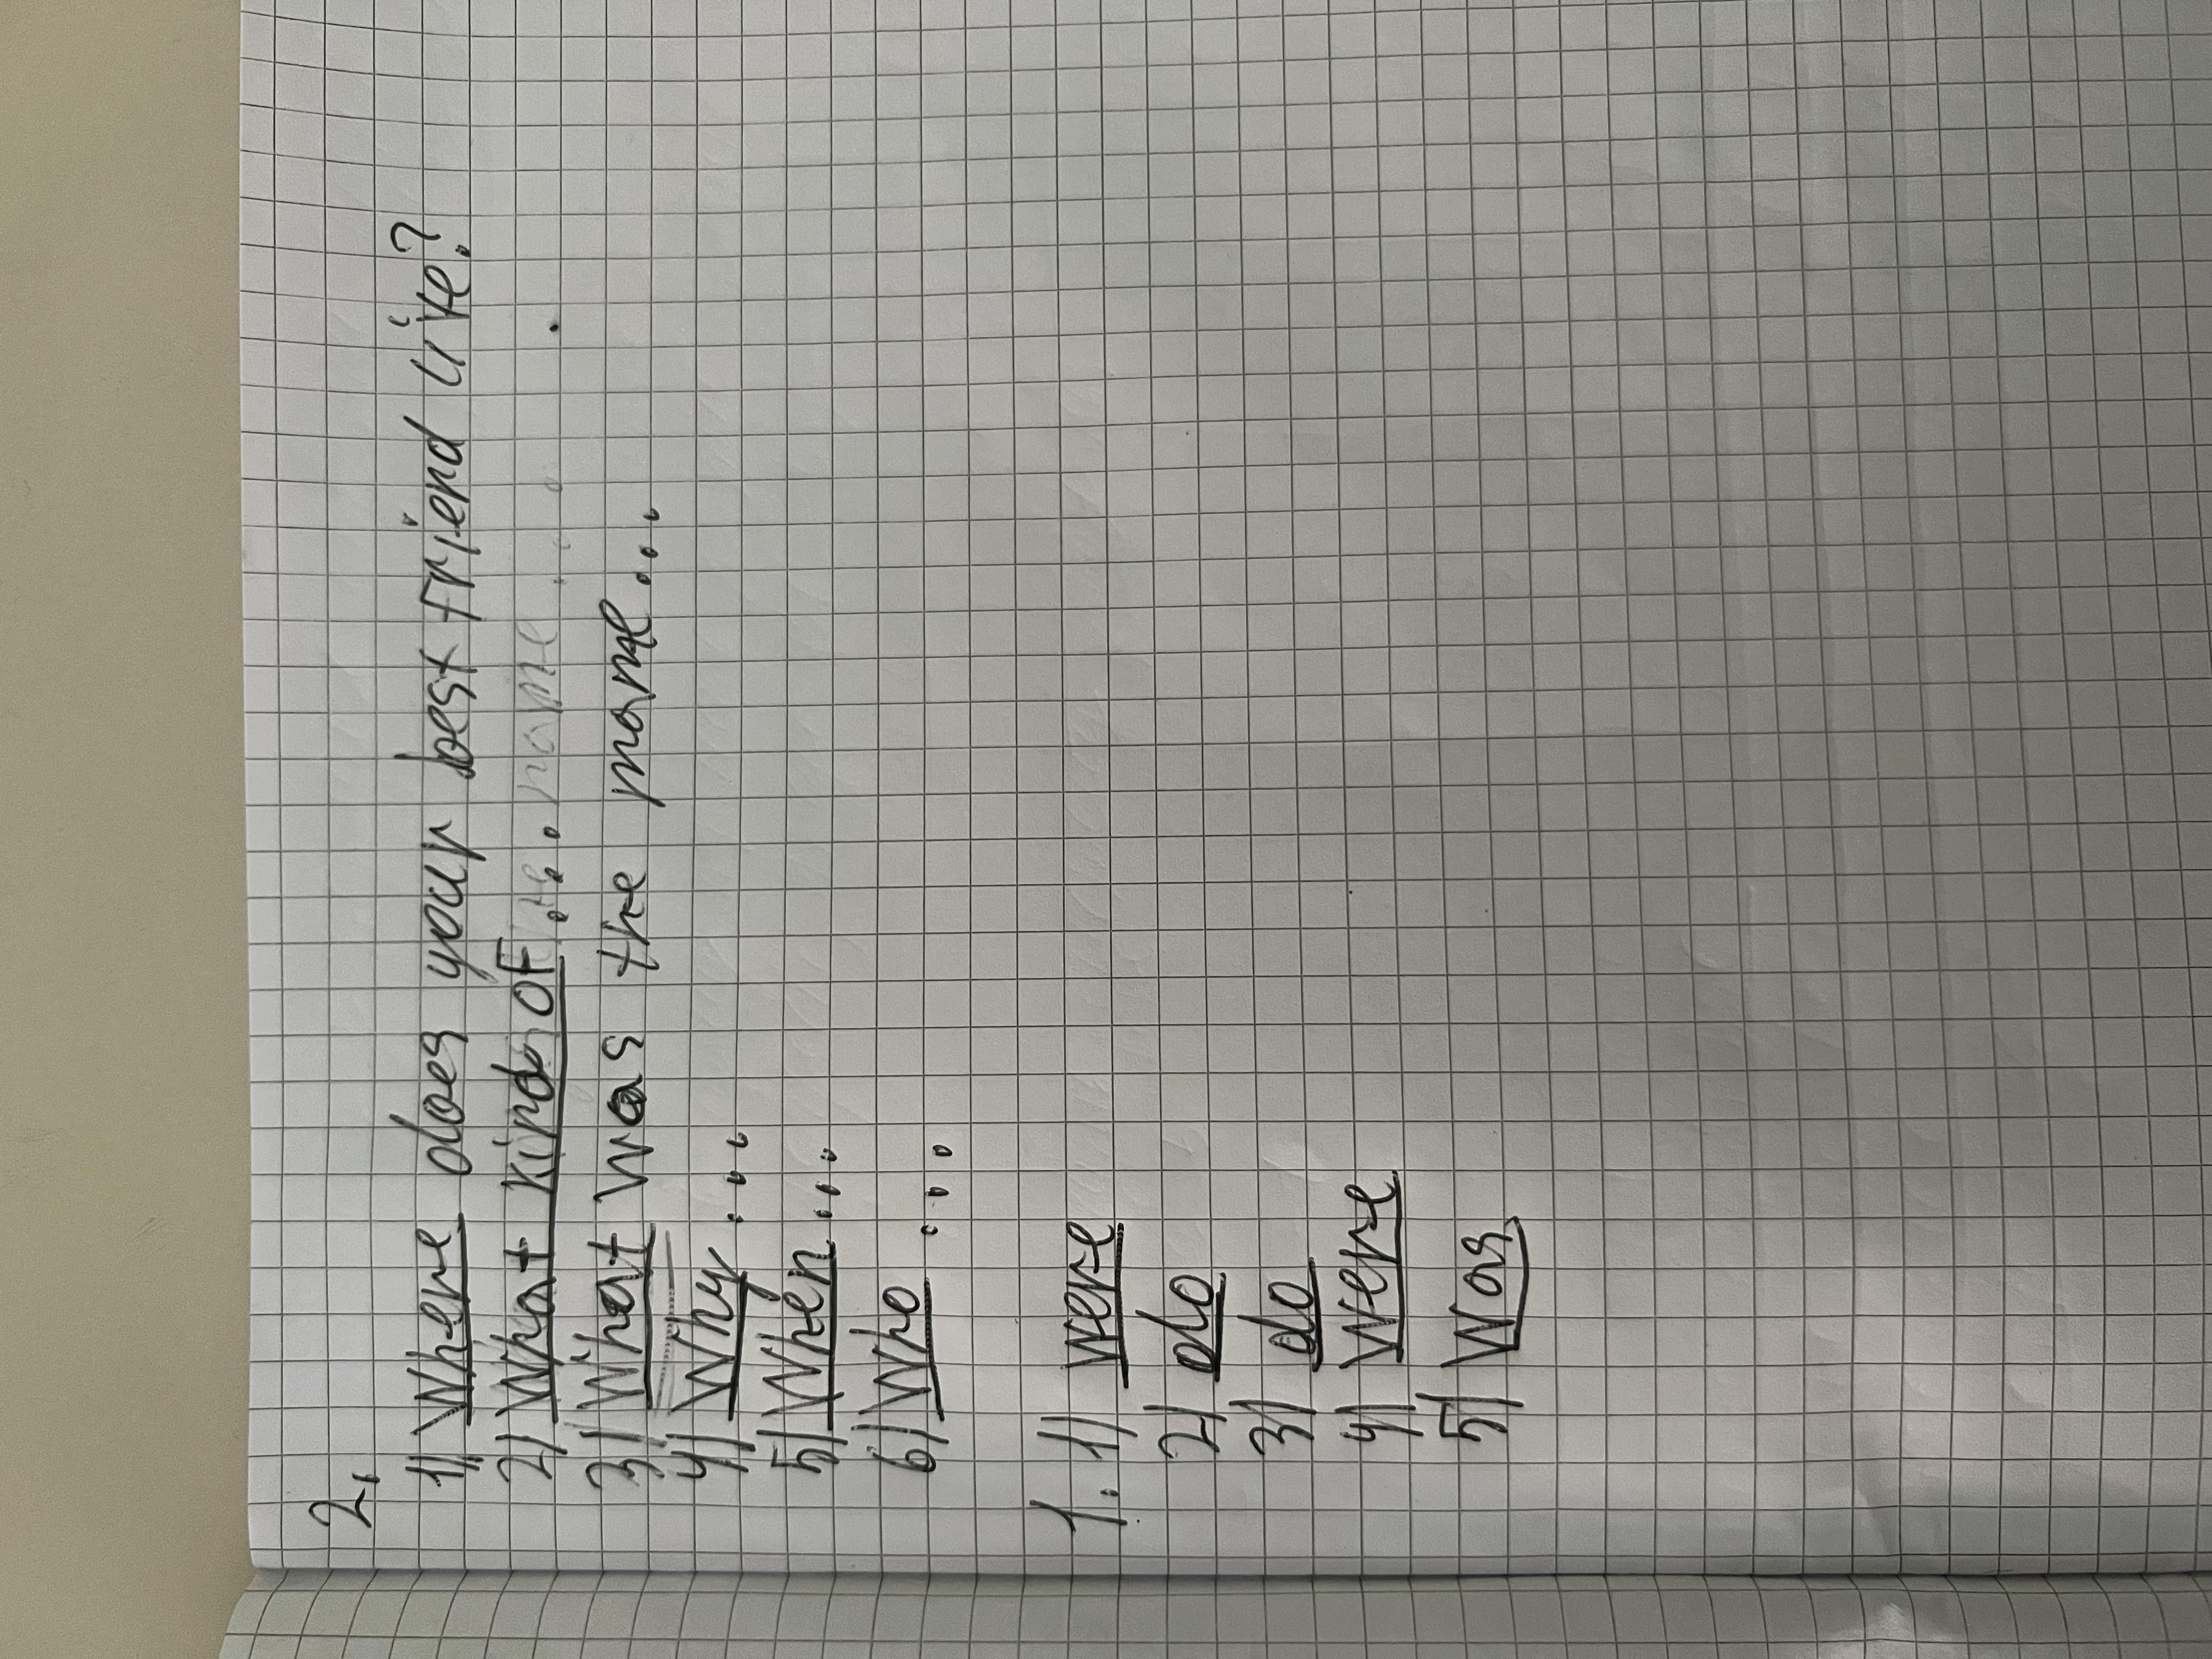 2.
1) Where does your best friend live?
2) What kind of ...
3) What was the name...
4) Why ...
5) When ...
6) Who ...
1. 1) were
2) do
3) do
4) Were
5) Was